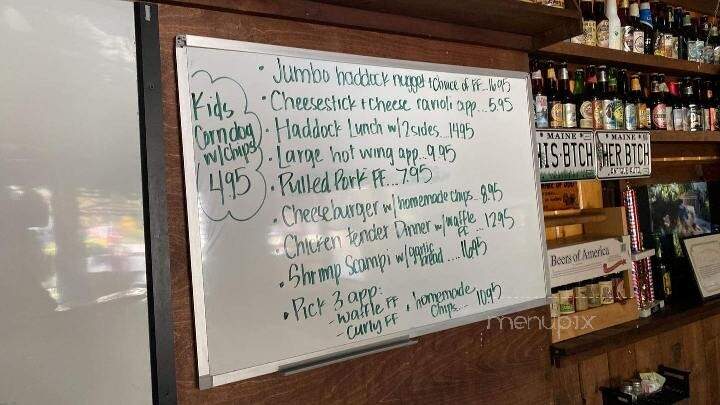 Kids
Corn dog
w/chips
4.95
• Jumbo haddock nugget + choice of FF...16.95
• Cheesestick + cheese ravioli app...5.95
• Haddock Lunch w/2 sides...14.95
• Large hot wing app...9.95
• Pulled Pork FF...7.95
• Cheeseburger w/homemade chips...8.95
• Chicken tender Dinner w/waffle FF 12.95
• Shrimp Scampi w/garlic bread....16.95
• Pick 3 app:
- waffle FF
- curly FF
• homemade chips... 10.95
MAINE
HIS·BITCH
MAINE
HER BITCH
Beers of America
menupix